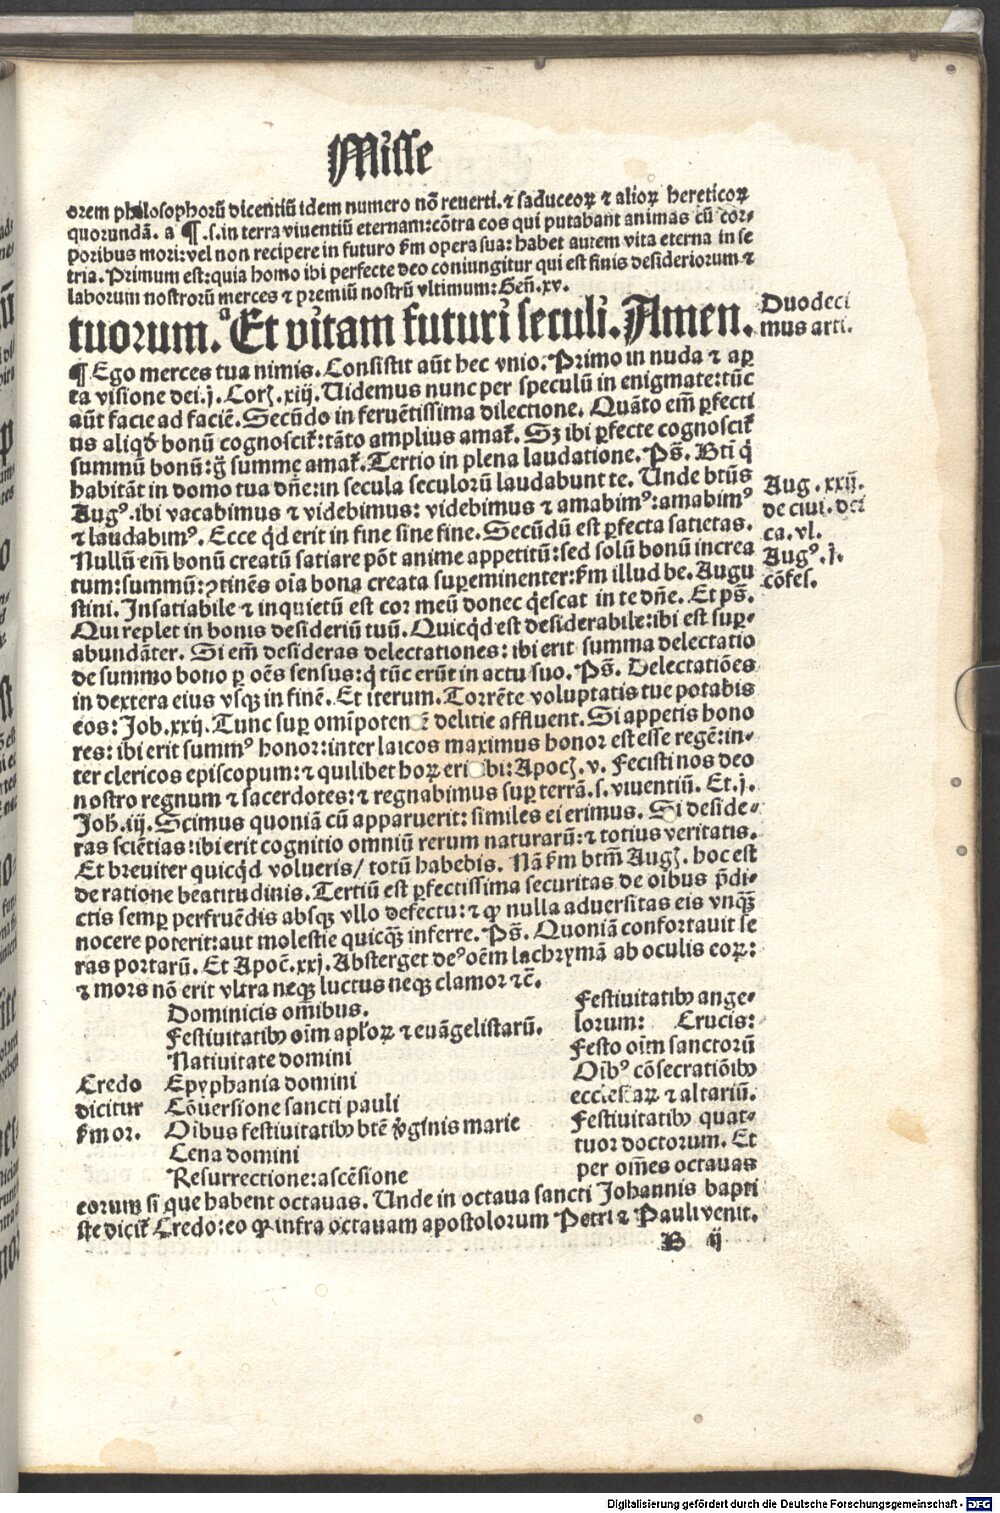 Misse
orem philosophorū dicentiū idem numero nō reuerti.⁊ saduceoꝝ ⁊ alioꝝ hereticoꝝ
quorundā. a ¶ .s.in terra viuentiū eternam:cōtra eos qui putabant animas cū cor-
poribus mori:vel non recipere in futuro ẜm opera sua: habet autem vita eterna in se
tria. Primum est:quia homo ibi perfecte deo coniungitur qui est finis desideriorum ⁊
laborum nostrorū merces ⁊ premiū nostrū vltimum: Geñ.xv.
tuorum. ᵃ Et vitam futuri seculi. Amen.
Duodeci
mus arti.
¶ Ego merces tua nimis. Consistit aūt hec vnio. Primo in nuda ⁊ aꝑ
ta visione dei.j. Corꝫ. xiij. Uidemus nunc per speculū in enigmate:tūc
aūt facie ad faciē. Secūdo in feruētissima dilectione. Quāto em̄ ꝑfecti
us aliqd̄ bonū cognoscit̄:tāto amplius amat̄. Sꝫ ibi ꝑfecte cognoscit̄
summū bonū:g̊ summe amat̄. Tertio in plena laudatione. Ps̄. Bt̄i q̇
habitāt in domo tua dn̄e:in secula seculorū laudabunt te. Unde bt̄us
Augꝰ.ibi vacabimus ⁊ videbimus: videbimus ⁊ amabimꝰ:amabimꝰ
⁊ laudabimꝰ. Ecce qd̄ erit in fine sine fine. Secūdū est ꝑfecta satietas.
Nullū em̄ bonū creatū satiare pōt anime appetitū:sed solū bonū increa
tum:summū:ꝯtinēs oīa bona creata suꝑeminenter:ẜm illud be. Augu
stini. Insatiabile ⁊ inquietū est cor meū donec q̇escat in te dn̄e. Et ps̄.
Aug. xxij.
de ciui. dei
ca. vl.
Augꝰ. j.
cōfes.
Qui replet in bonis desideriū tuū. Quicqd̄ est desiderabile:ibi est suꝑ-
abundāter. Si em̄ desideras delectationes: ibi erit summa delectatio
de summo bono ꝑ oēs sensus:q̇ tūc erūt in actu suo. Ps̄. Delectatiōes
in dextera eius vsqꝫ in finē. Et iterum. Torrēte voluptatis tue potabis
eos: Job.xxij. Tunc suꝑ omīpoten ē delitie affluent. Si appetis hono
res: ibi erit summꝰ honor:inter laicos maximus honor est esse regē:in-
ter clericos episcopum: ⁊ quilibet hoꝝ eri ibi: Apocꝫ. v. Fecisti nos deo
nostro regnum ⁊ sacerdotes: ⁊ regnabimus suꝑ terrā.s. viuentiū. Et.j.
Joh̄.iij. Scimus quoniā cū apparuerit: similes ei erimus. Si deside-
ras sciētias: ibi erit cognitio omniū rerum naturarū: ⁊ totius veritatis.
Et breuiter quicqd̄ volueris/ totū habebis. Nā ẜm btm̄ Augꝫ. hoc est
de ratione beatitudinis. Tertiū est ꝑfectissima securitas de oībus p̄di-
ctis semꝑ perfruēdis absqꝫ vllo defectu: ⁊ ꝙ nulla aduersitas eis vnqꝫ̄
nocere poterit:aut molestie quicqꝫ̄ inferre. Ps̄. Quoniā confortauit se
ras portarū. Et Apoc̄.xxj. Absterget deꝰ oēm lachrymā ab oculis eoꝝ:
⁊ mors nō erit vltra neqꝫ luctus neqꝫ clamor ⁊c̄.
Credo
dicitur
ẜm or.
Dominicis om̄ibus.
Festiuitatibꝰ oīm apl'oꝝ ⁊ euāgelistarū.
Natiuitate domini
Epyphania domini
Cōuersione sancti pauli
Oībus festiuitatibꝰ btē v̄ginis marie
Cena domini
Resurrectione:ascēsione
Festiuitatibꝰ ange-
lorum: Crucis:
Festo oīm sanctorū
Oībꝰ cōsecratiōibꝰ
ecclesiaꝝ ⁊ altariū.
Festiuitatibꝰ quat-
tuor doctorum. Et
per om̄es octauas
eorum si que habent octauas. Unde in octaua sancti Johannis bapti
ste dicit̄ Credo:eo ꝙ infra octauam apostolorum Petri ⁊ Pauli venit.
B ij
Digitalisierung gefördert durch die Deutsche Forschungsgemeinschaft - DFG